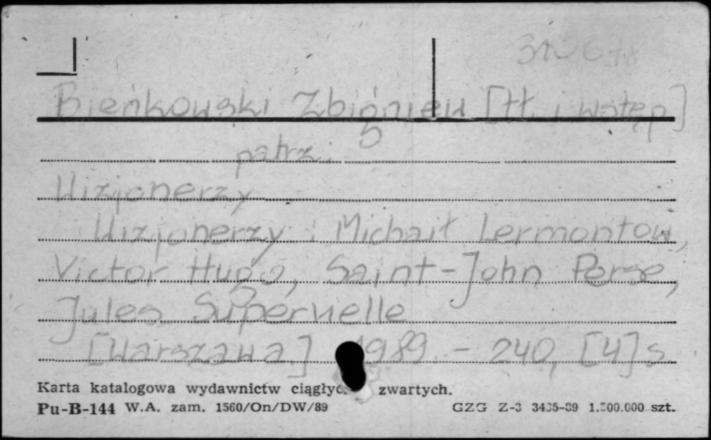 Bieńkowski Zbigniew [tł. i wstęp]
patrz:
Wizjonerzy
Wizjonerzy : Michaił Lermontow,
Victor Hugo, Saint-John Perse,
Jules Supervielle
[Warszawa] 1989. - 240, [4] s.
Karta katalogowa wydawnictw ciągłyc zwartych.
Pu-B-144 W.A. zam. 1560/On/DW/89 GZG Z-3 3435-89 1.500.000 szt.